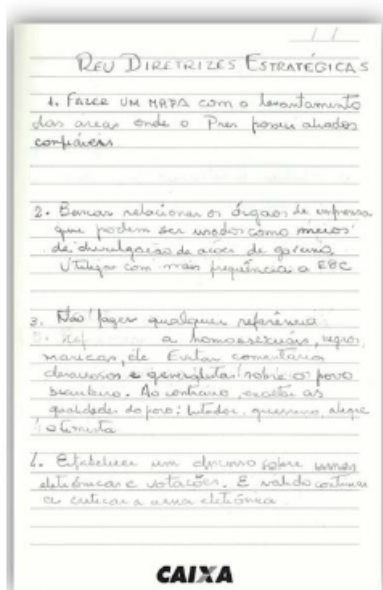 / /
REU DIRETRIZES ESTRATÉGICAS
1. FAZER UM MAPA com o levantamento
das areas onde o Pres possui aliados
confiáveis
2. Buscar relacionar os órgãos de imprensa
que podem ser usados como meios
de divulgação de ações de governo
Utilizar com mais frequência a EBC
3. Não fazer qualquer referência
a homosexuais, negros,
maricas, etc Evitar comentários
e generalistas sobre os povo
brasileiro. Ao contrário, exaltar as
qualidades do povo: lutador, guerreiro, alegre
otimista
Estabelecer um discurso sobre urnas
eletrônicas e votações. É valido continuar
a criticar a urna eletrônica.
CAIXA